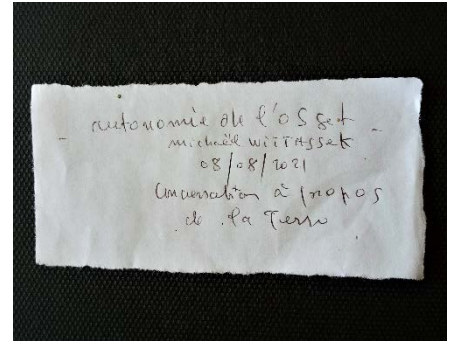 - autonomie de l'objet -
michaël WITTASSEK
08/08/2021
Conversation à propos
de la Terre